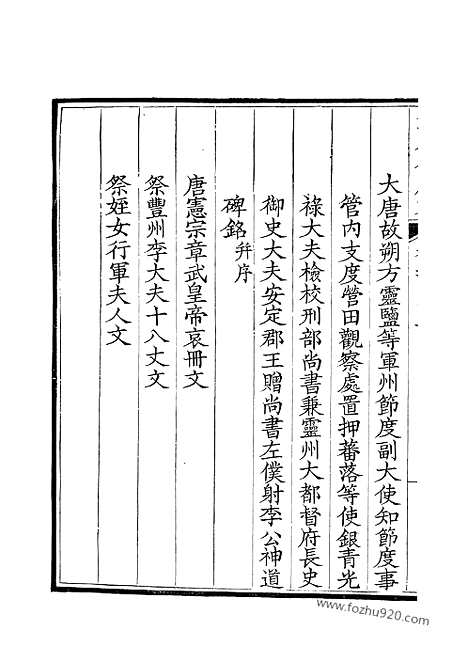 大唐故朔方靈鹽等軍州節度副大使知節度事
管內支度營田觀察處置押蕃落等使銀青光
祿大夫檢校刑部尚書兼靈州大都督府長史
御史大夫安定郡王贈尚書左僕射李公神道
碑銘并序
唐憲宗章武皇帝哀冊文
祭豐州李大夫十八丈文
祭姪女行軍夫人文
www.fozhu920.com